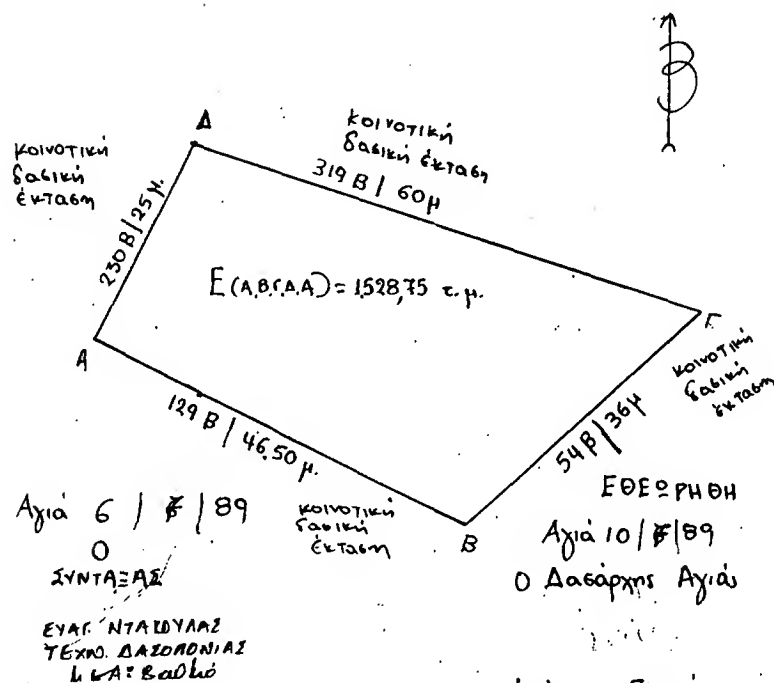 Β
Δ
κοινοτική
δασική
έκταση
κοινοτική
δασική έκταση
319 Β / 60 μ
230 Β / 25 μ.
Ε (Α.Β.Γ.Δ.Α) = 1.528,75 τ.μ.
Γ
Α
κοινοτική
δασική
έκταση
129 Β / 46,50 μ.
54 Β / 36 μ
κοινοτική
δασική
έκταση
Β
Αγιά 6 / / 89
Ο
ΣΥΝΤΑΞΑΣ
ΕΥΑΓ. ΝΤΑΚΟΥΛΑΣ
ΤΕΧΝΟ. ΔΑΣΟΠΟΝΙΑΣ
ΕΘΕΩΡΗΘΗ
Αγιά 10 / / 89
Ο Δασάρχης Αγιάς